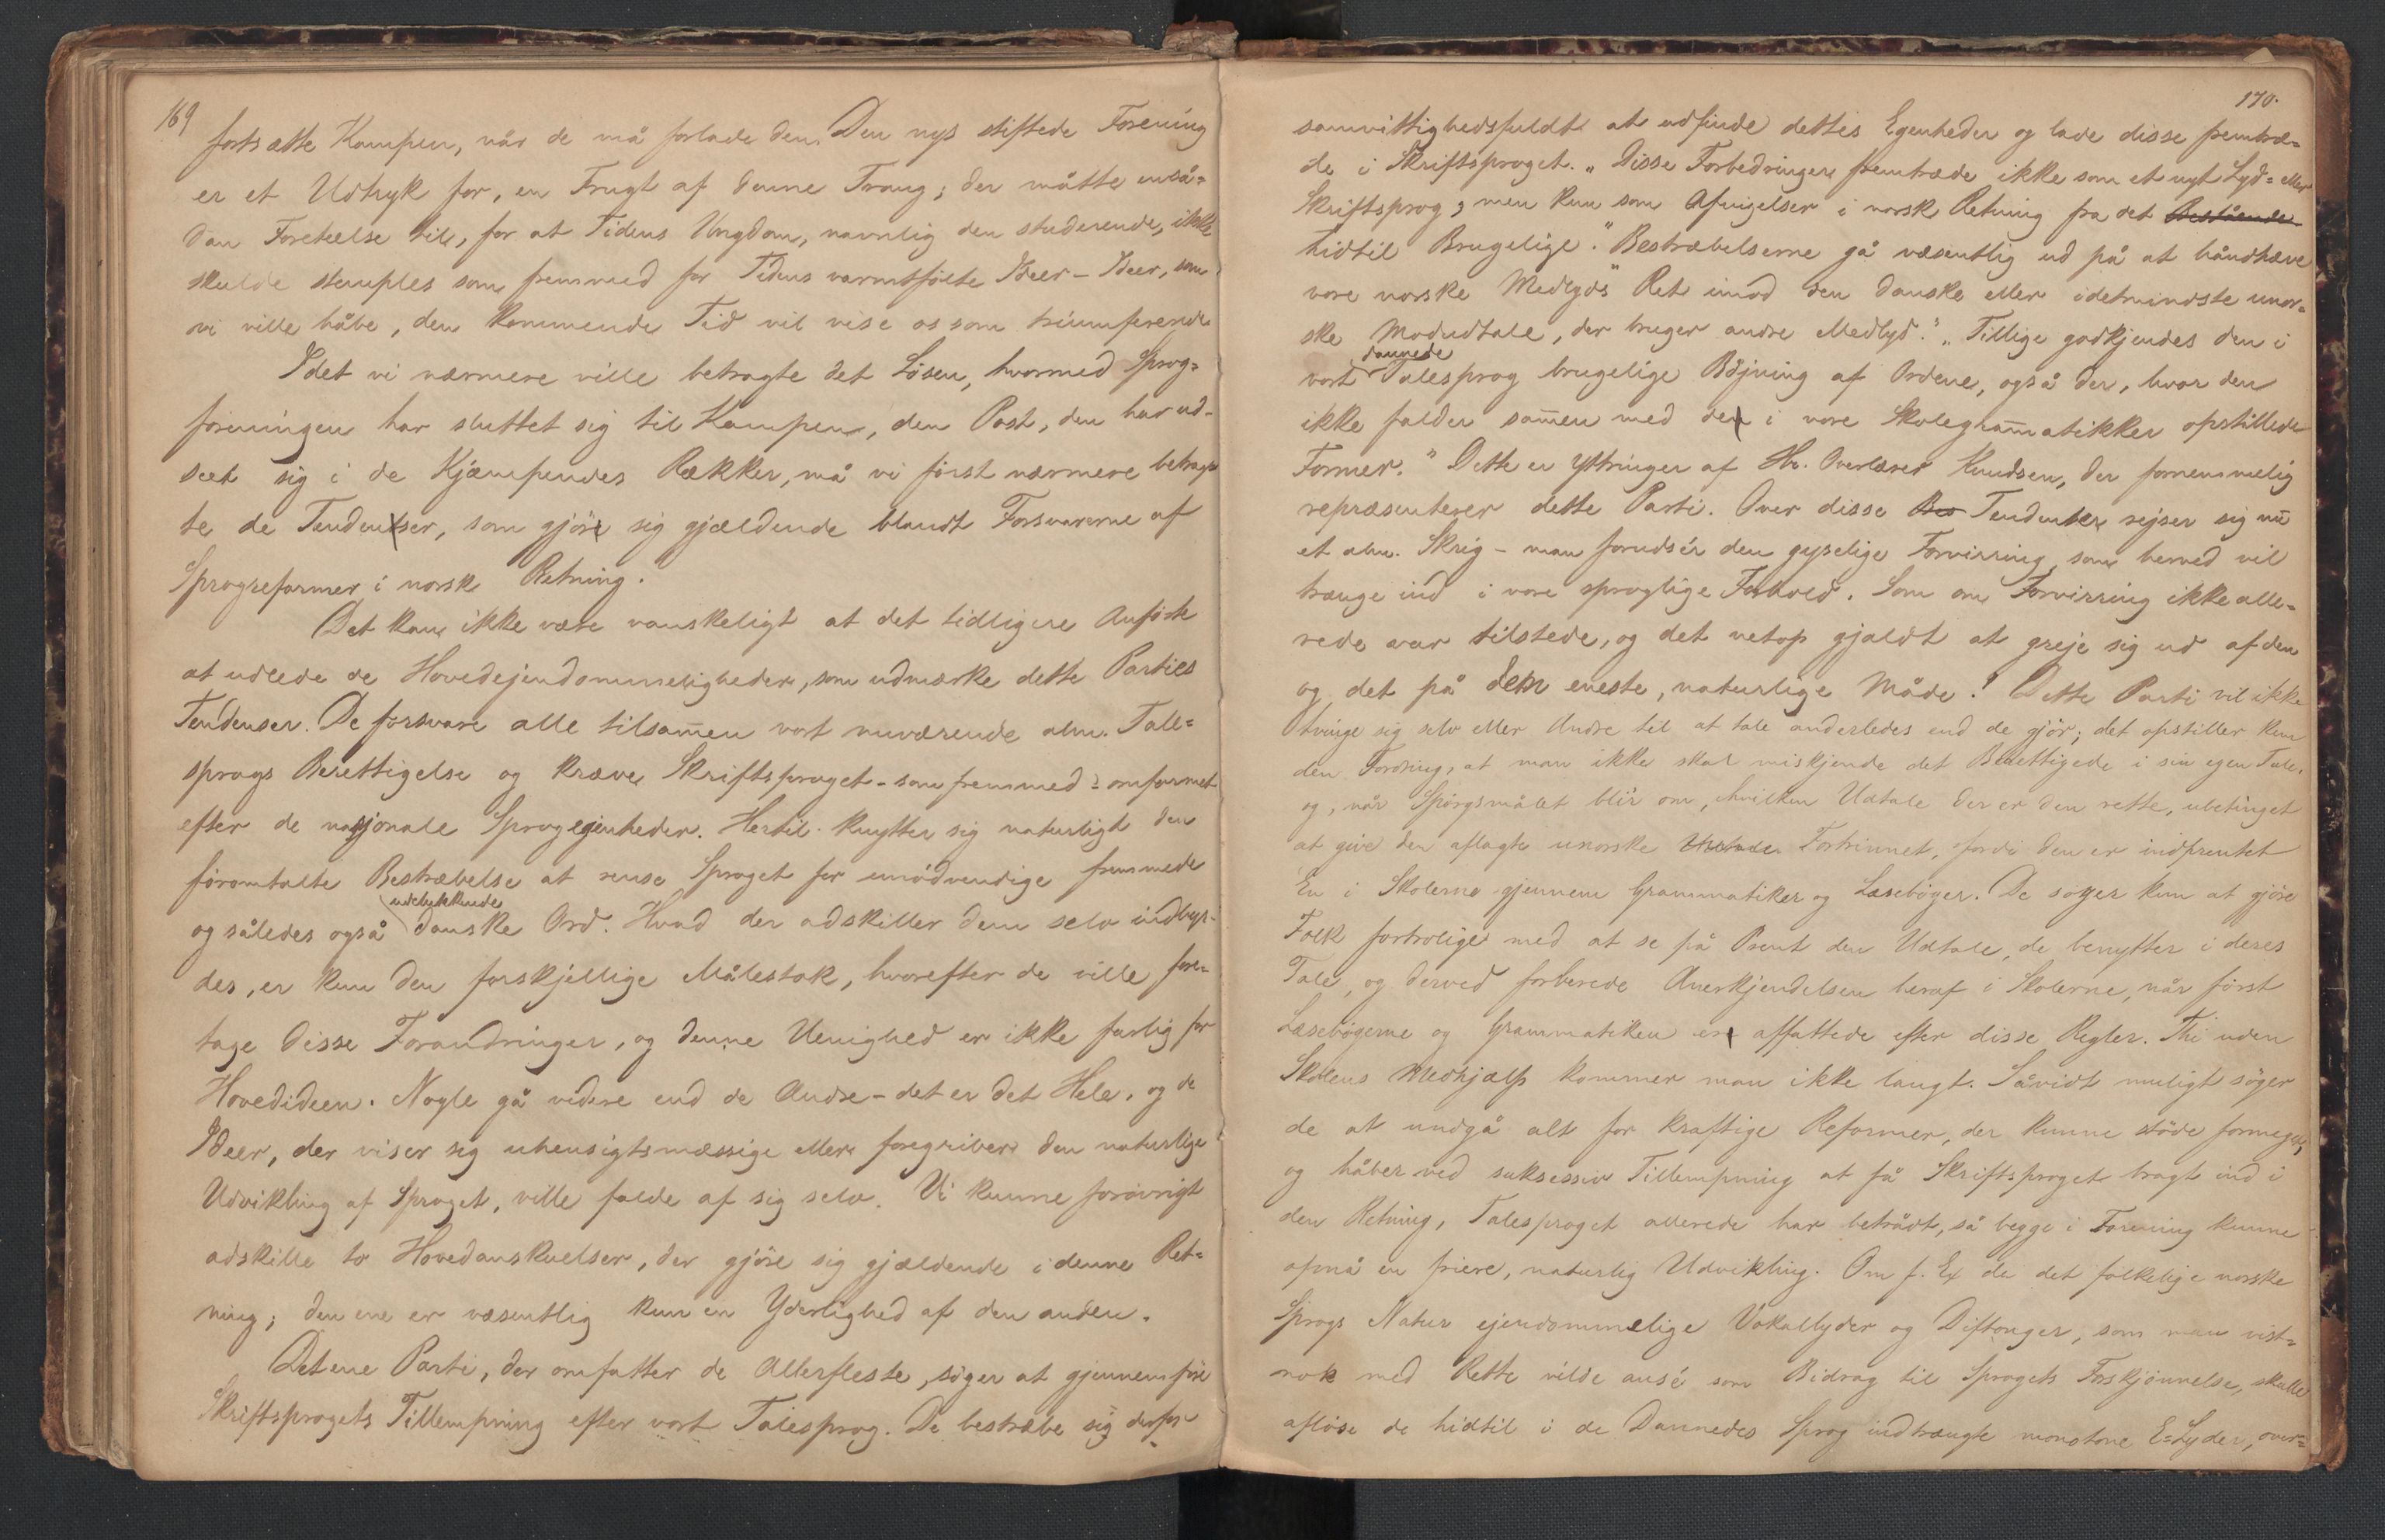 169
fortsætte Kampen, når de må forlade den. Den nys stiftede Forening
er et Udtryk for, en Frugt af denne Trang; der måtte en så=
dan Foreteelse til, for at Tidens Ungdom, navnlig den studerende, ikke
skulde stemples som fremmed for Tidens varmtfølte Ideer – Ideer, som
vi ville håbe, den kommende Tid vil vise os som triumferende
Idet vi nærmere ville betragte det Løsen, hvormed Sprog=
foreningen har sluttet sig til Kampen, den Post, den har ud-
seet sig i de Kjæmpendes Rækker, må vi først nærmere betrag
te de Tendenser, som gjøre sig gjældende blandt Forsvarerne af
Sprogreformer i norsk Retning.
Det kan ikke være vanskeligt at det tidligere Anførte
at udlede de Hovedejendommeligheder, som udmærke dette Parties
Tendenser. De forsvare alle tilsam̄en vort nuværende alm. Tale=
sprogs Berettigelse og kræve Skriftsproget – som fremmed – omformet
efter de nasjonale Sprogegenheder. Hertil knytter sig naturligt den
føromtalte Bestræbelse at rense Sproget for unødvendige fremmede
og således også udelukkende danske Ord. Hvad der adskiller dem selv indbyr-
des, er kun den forskjellige Målestok, hvorefter de ville fore-
tage disse Forandringer, og denne Uenighed er ikke farlig for
Hovedideen. Nogle gå videre end de Andre – det er det Hele, og de
Ideer, der viser sig uhensigtsmæssige eller foregriber den naturlige
Udvikling af Sproget, ville falde af sig selv. Vi kunne forøvrigt
adskille to Hovedanskuelser, der gjøre sig gjældende i denne Ret=
ning; den ene er væsentlig kun en Yderlighed af den anden.
Det ene Parti, der omfatter de Allerfleste, søger at gjennemføre
Skriftsprogets Tillempning efter vort Talesprog. De bestræbe sig derfor
170.
samvittighedsfuldt at udfinde dettes Egenheder og lade disse fremtræ=
de i Skriftsproget. „Disse Forbedringer fremtræde ikke som et nyt Lyd= eller
Skriftsprog, men kun som Afvigelser i norsk Retning fra det Bestående
hidtil Brugelige." Bestræbelserne gå væsentlig ud på at håndhæve
vore norske Medlyds" Ret imod den danske eller idetmindste unor=
ske Modudtale, der bruger andre Medlyd." „Tillige godkjendes den i
vort dannede Talesprog brugelige Böjning af Ordene, også der, hvor den
ikke falder sam̄en med de i vore Skolegram̄atikker opstillede
Former." Dette er Yttringer af Hr. Overlærer Knudsen, der fornemmelig
repræsenterer dette Parti. Over disse Bes Tendenser rejser sig nū
et alm. Skrig – man forudsér den gyselige Forvirring, som herved vil
trænge ind i vore sproglige Forhold. Som om Forvirring ikke alle=
rede var tilstede, og det netop gjaldt at greje sig ud af den
og det på den eneste, naturlige Måde! Dette Parti vil ikke
tvinge sig selv eller Andre til at tale anderledes end de gjør; det opstiller kun
den Fordring, at man ikke skal miskjende det Berettigede i sin egen Tale,
og, når Spørgsmålet blir om, hvilken Udtale der er den rette, ubetinget
at give den aflagte unorske Udtale Fortrinnet, fordi den er indprentet
En i Skolerne gjennem Grammatiker og Læsebøger. De søger kun at gjøre
Folk fortrolige med at se på Prent den Udtale, de benytter i deres
Tale, og derved forberede Anerkjendelsen heraf i Skolerne, når först
Læsebøgerne og Grammatiken er affattede efter disse Regler. Thi uden
Skolens Medhjælp kommer man ikke langt. Såvidt muligt söger
de at undgå alt for kraftige Reformer, der kunne støde formeget,
og håber ved suksessiv Tillempning at få Skriftsproget bragt ind i
den Retning, Talesproget allerede har betrådt, så begge i Forening kunne
opnå en friere, naturlig Udvikling. Om f. Ex de det folkelige norske
Sprogs Natur ejendommelige Vokallyder og Diftonger, som man vist=
nok med Rette vilde ansé som Bidrag til Sprogets Forskjønnelse, skulle
afløse de hidtil i de Dannedes Sprog indtrængte monotone E=Lyder, over=